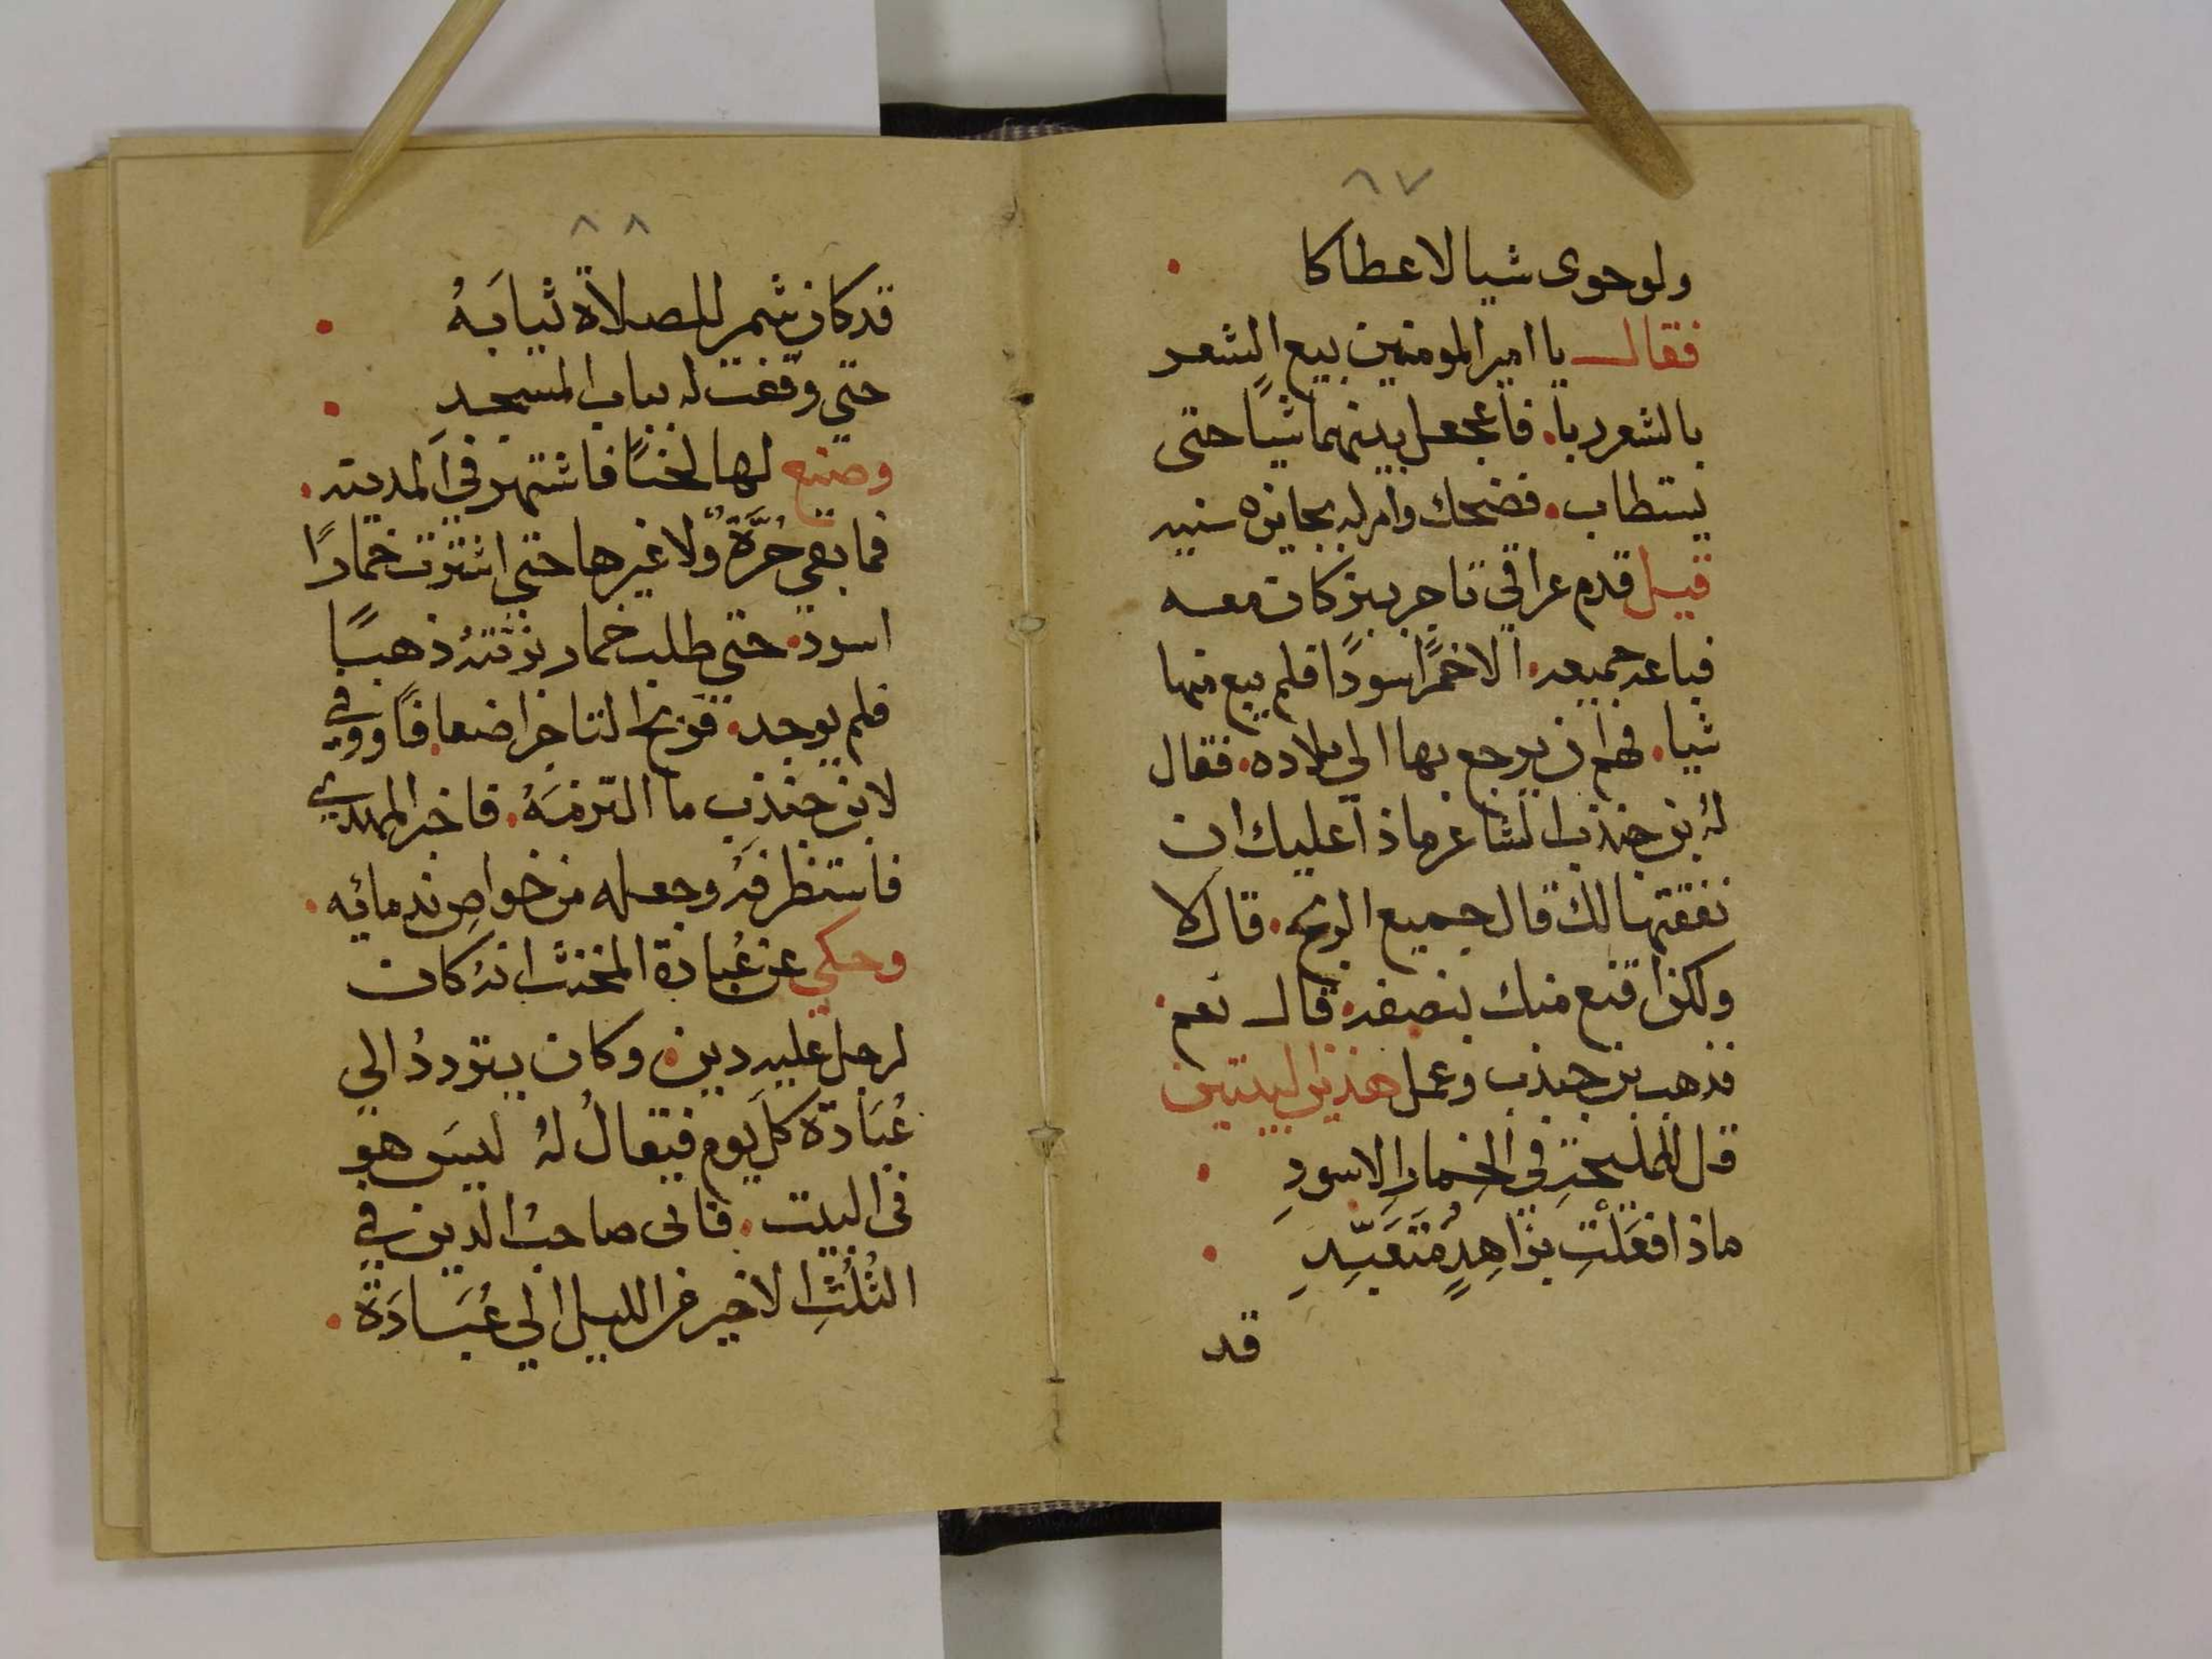 ٨٧
ولو حوى شيا لاعطاكا
فقال يا امير المومنين بيع الشعر
بالشعر ربا. فاجعل بينهما شيًا حتى
يستطاب. فضحك وامر له بجايزه سنيه
قيل قدم عراقي تاجر ببز كان معه
فباعه جميعه. الا خمرًا سودًا فلم يبع منها
شيا. فهم ان يرجع بها الي بلاده. فقال
لهُ بن جندب الشاعر ماذا عليك ان
نفقتها لك قال جميع الربح. قال لا
ولكن اقنع منك بنصفه. قال نعم.
فذهب بن جندب وعمل هذين البيتين
قل للمليحةِ في الخِمارِ الاسودِ
ماذا فعَلْتِ بزاهِدٍ مُتَعَبِّدِ
قد
٨٨
قد كان شمر للصلاة ثيابَهُ
حتي وقفت له بباب المسجدِ
وصنع لها لحنًا فاشتهر في المدينه.
فما بقي حُرَّةٌ ولا غيرها حتي اشترت خمارًا
اسود. حتي طلب خمار بزنته ذهبًا
فلم يوجد. فربح التاجر اضعافًا ووفي
لابن جندب ما التزمَهُ. فاخبر المهدي
فاستظرفهُ وجعله من خواصِ ندمائِه.
وحكي عن عُبادة المخنث انه كان
لرجل عليه دين. وكان يتردد الي
عُبَادَة كل يوم فيقالُ لهُ ليسَ هو
في البيت. فاتى صاحبُ الدين في
الثُلُثِ الاخير من الليل الي عُبَادَةَ.